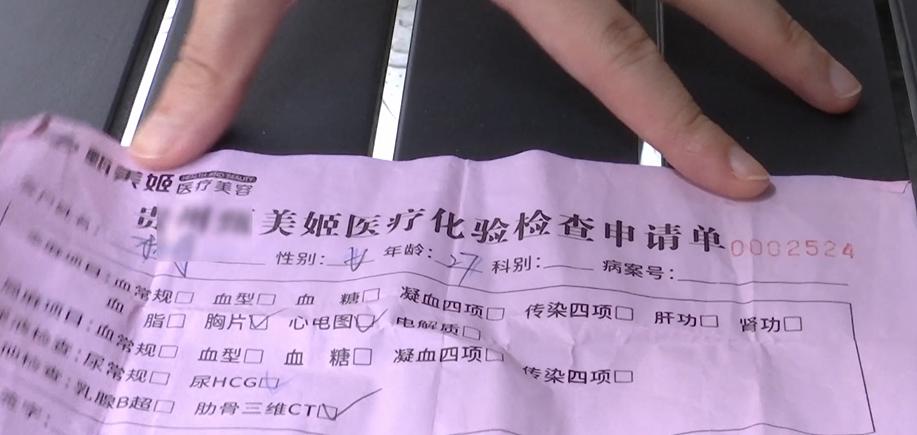 美姬 HEALTH AND BEAUTY 医疗美容
贵 美姬医疗化验检查申请单 0002524
性别: 女 年龄: 27 科别: 病案号:
血常规□ 血型□ 血 糖□ 凝血四项□ 传染四项□ 肝功□ 肾功□
血 脂□ 胸片☑ 心电图☑ 电解质□
血常规□ 血型□ 血 糖□ 凝血四项□ 传染四项□
尿常规□ 尿HCG☑
乳腺B超□ 肋骨三维CT☑
签字: